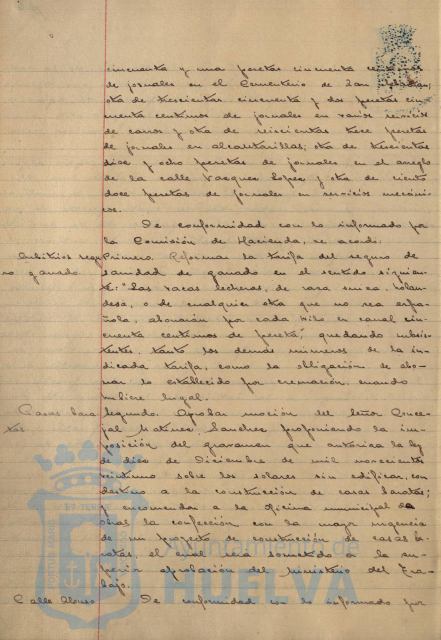 cincuenta y una pesetas cincuenta
de jornales en el Cementerio de San Sebastian;
otra de trescientas cincuenta y dos pesetas cin-
cuenta centimos de jornales en varios servicios
de carros y otra de seiscientas trece pesetas
de jornales en alcantarillas; otra de trescientas
diez y ocho pesetas de jornales en el arreglo
de la calle Vazquez Lopez y otra de ciento
doce pesetas de jornales en servicios mecáni-
cos.
De conformidad con lo informado por
la Comisión de Hacienda, se acordó:
Arbitrios segu-
ro ganado.
Primero. Reformar la tarifa del seguro de
sanidad de ganado en el sentido siguien-
te: "Las vacas lecheras, de raza suiza, holan-
desa, o de cualquier otra que no sea espa-
ñola, abonarán por cada kilo en canal cin-
cuenta centimos de peseta", quedando subsis-
tentes, tanto los demás números de la in-
dicada tarifa, como la obligación de abo-
nar lo establecido por cremación, cuando
hubiere lugar.
Casas bara-
tas
Segundo. Aprobar moción del señor Conce-
jal Martinez Sanchez proponiendo la im-
posición del gravamen que autoriza la ley
de diez de Diciembre de mil novecientos
veintiuno sobre los solares sin edificar, con
destino a la construcción de casas baratas;
y encomendar a la oficina municipal de
obras la confección, con la mayor urgencia
de un proyecto de construcción de casas ba-
ratas, el cual será sometido a la su-
perior aprobación del Ministerio del Tra-
bajo.
Calle Alonso
De conformidad con lo informado por
Ayuntamiento de
HUELVA